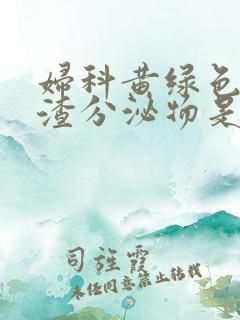 婦科黄绿色
渣分泌物是
司旌霞
未经同意禁止转载